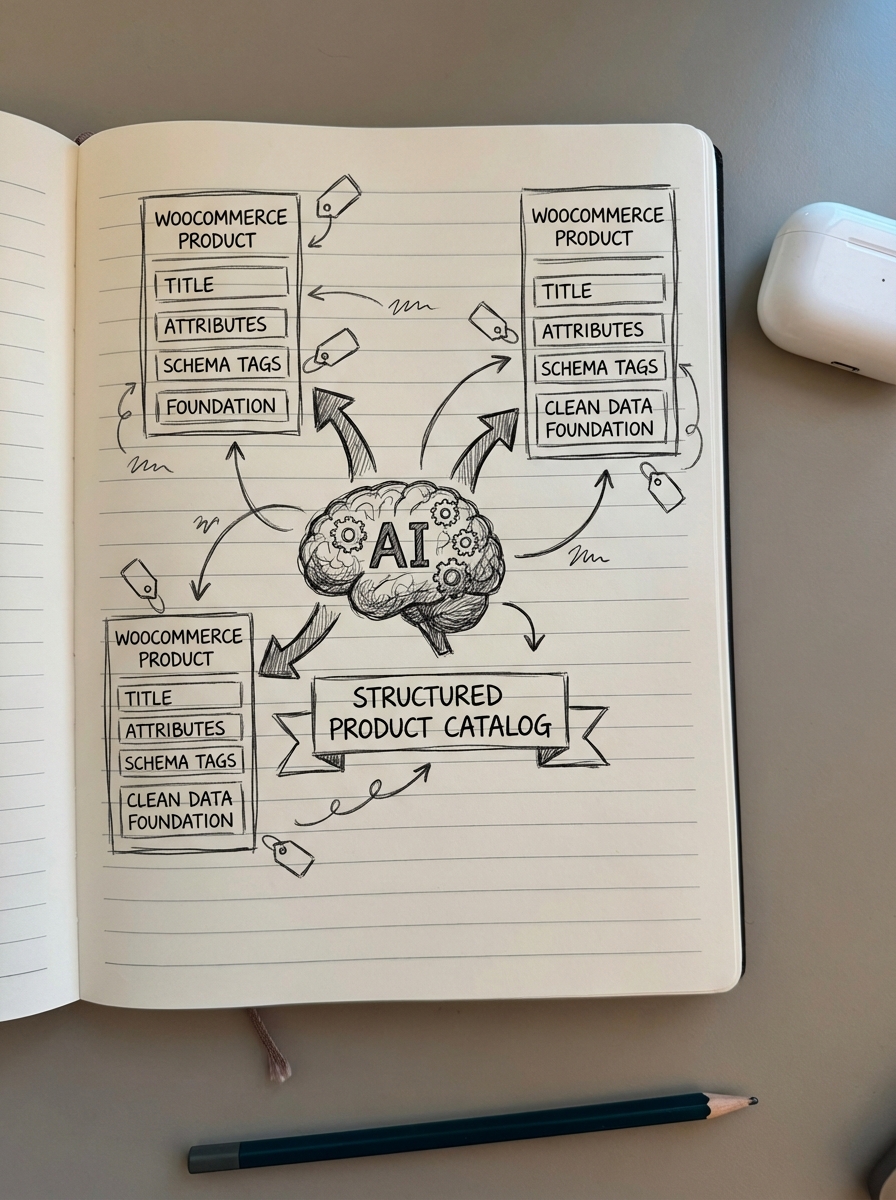 WOOCOMMERCE
PRODUCT
TITLE
ATTRIBUTES
SCHEMA TAGS
FOUNDATION
WOOCOMMERCE
PRODUCT
TITLE
ATTRIBUTES
SCHEMA TAGS
CLEAN DATA
FOUNDATION
AI
WOOCOMMERCE
PRODUCT
TITLE
ATTRIBUTES
SCHEMA TAGS
CLEAN DATA
FOUNDATION
STRUCTURED
PRODUCT CATALOG